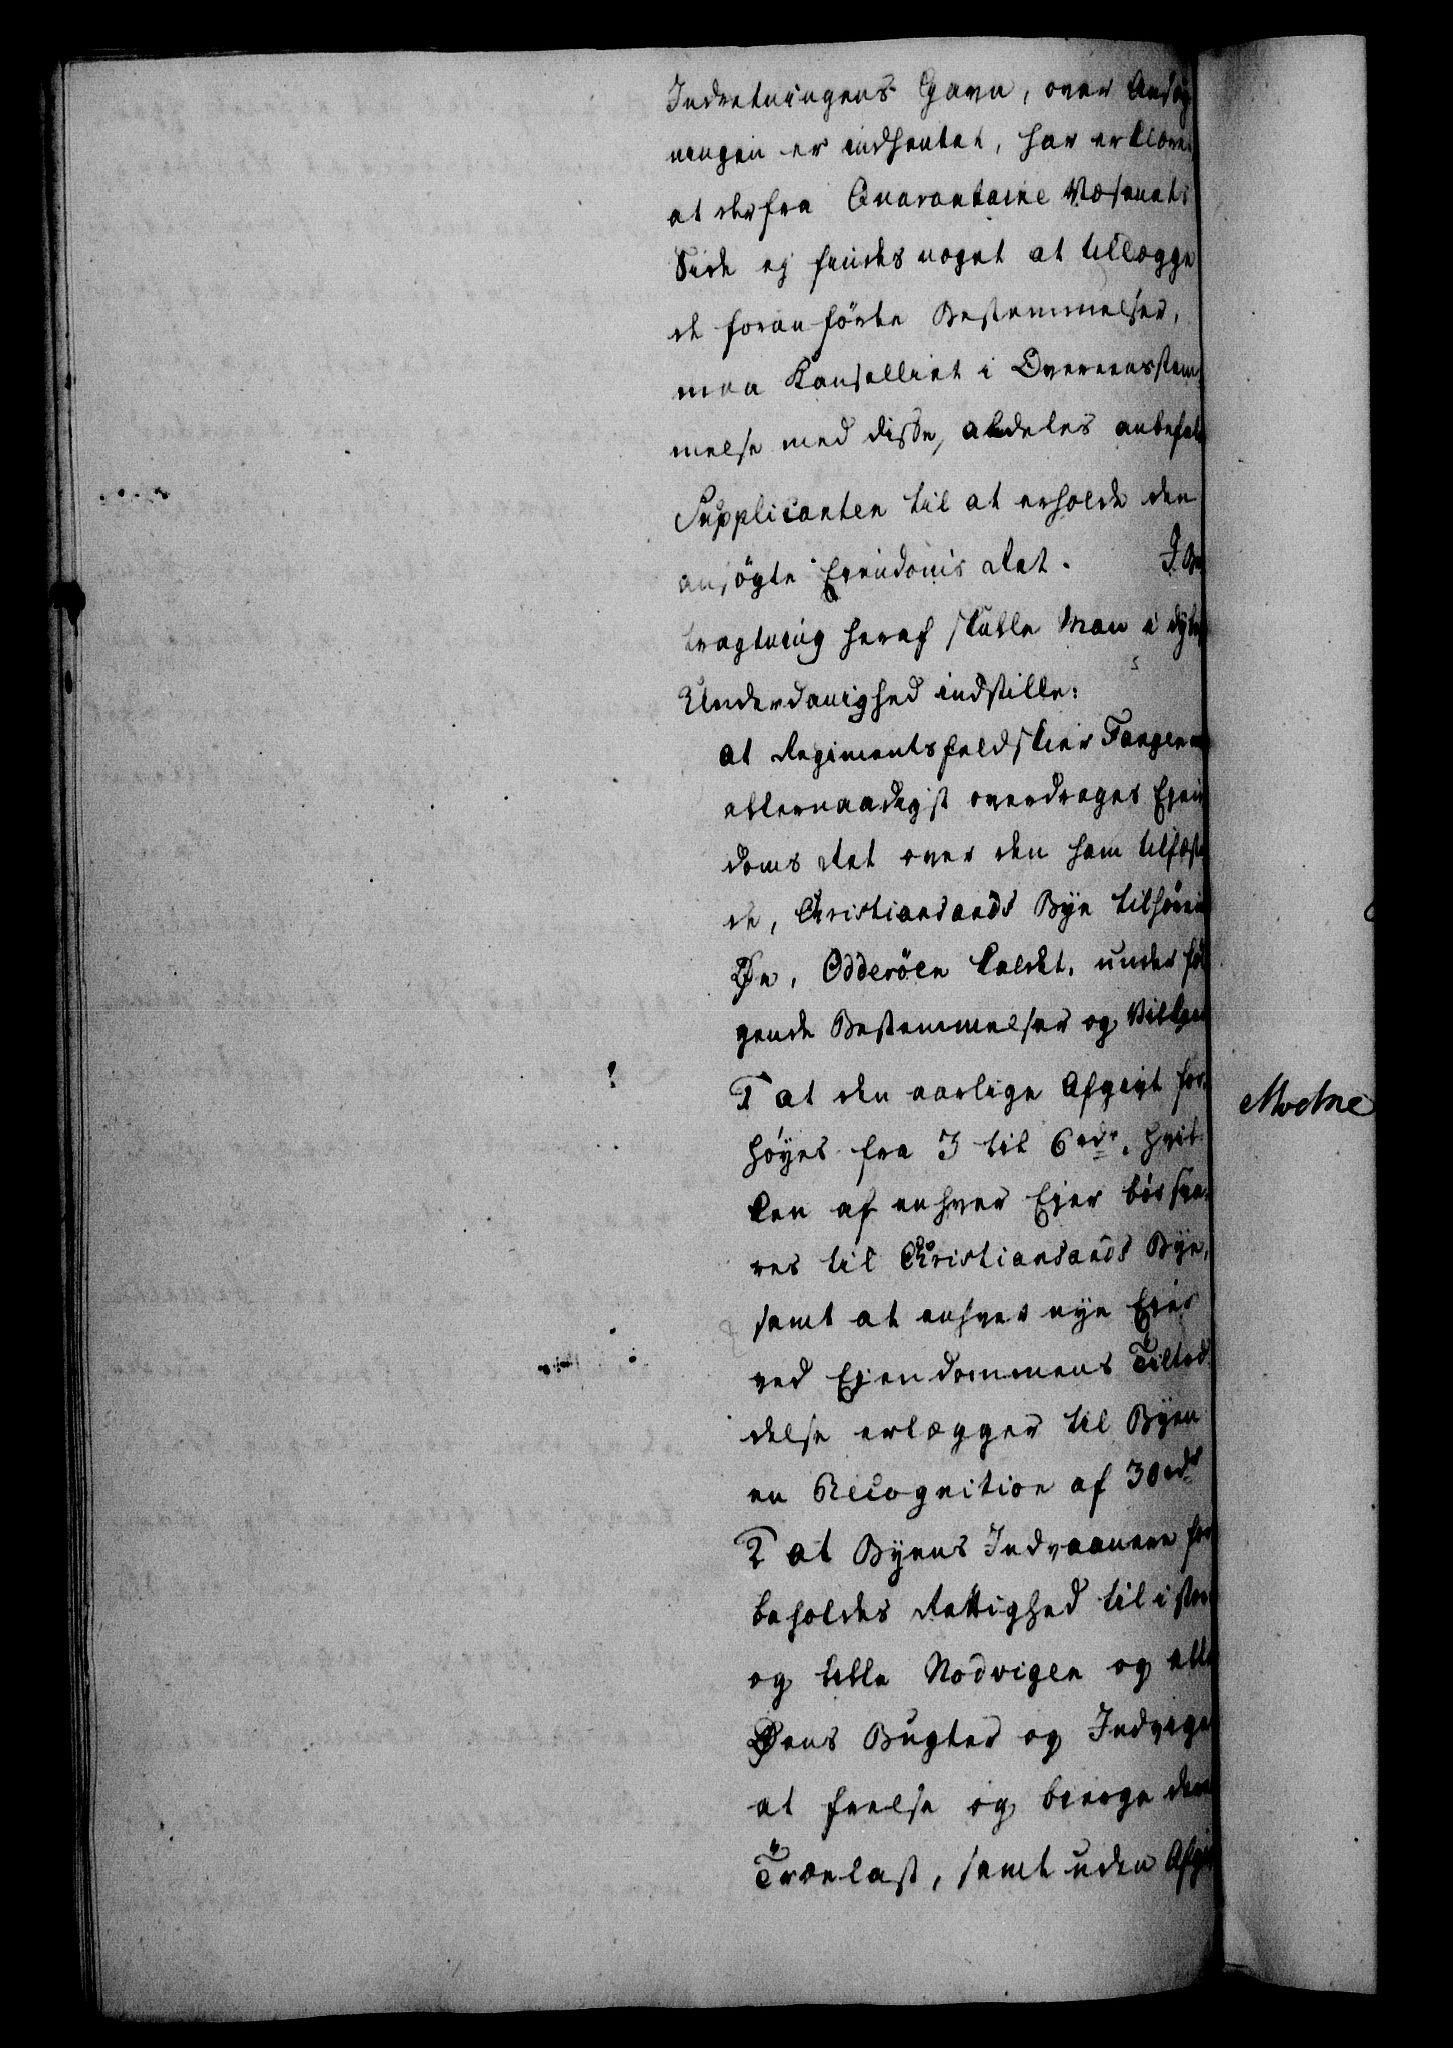 Indretningens Gavn, over Ansøg-
ningen er indhentet, har erklæret,
at der fra Quarantaine Væsenets
Side ej findes noget at tillægge
de foranførte Bestemmelser,
maa Kancelliet i Overeensstem-
melse med disse, aldeles anbefale
Supplicanten til at erholde den
ansøgte Ejendoms Ret. I Be-
tragtning heraf skulle Man i dybeste
Underdanighed indstille:
at Regimentsfeldskier Fangen
allernaadigst overdrages Ejen-
doms Ret over den ham tilfæste-
de, Christiansands Bye tilhørende
Øe, Odderöen kaldet, under føl-
gende Bestemmelser og Vilkaar
1 at den aarlige Afgivt for-
høyes fra 3 til 6 rdr, hvil-
ken af enhver Ejer bör sva-
res til Christiansands Bye,
samt at enhver nye Ejer
ved Ejendommens Tiltræ-
delse erlægger til Byen
en Recognition af 30 rdr
2 at Byens Indvaanere for-
beholdes Rettighed til i store
og lille Nodvigen og alle
Øens Bugter og Indvige
at frelse og bierge deres
Trælast, samt uden Afgivt